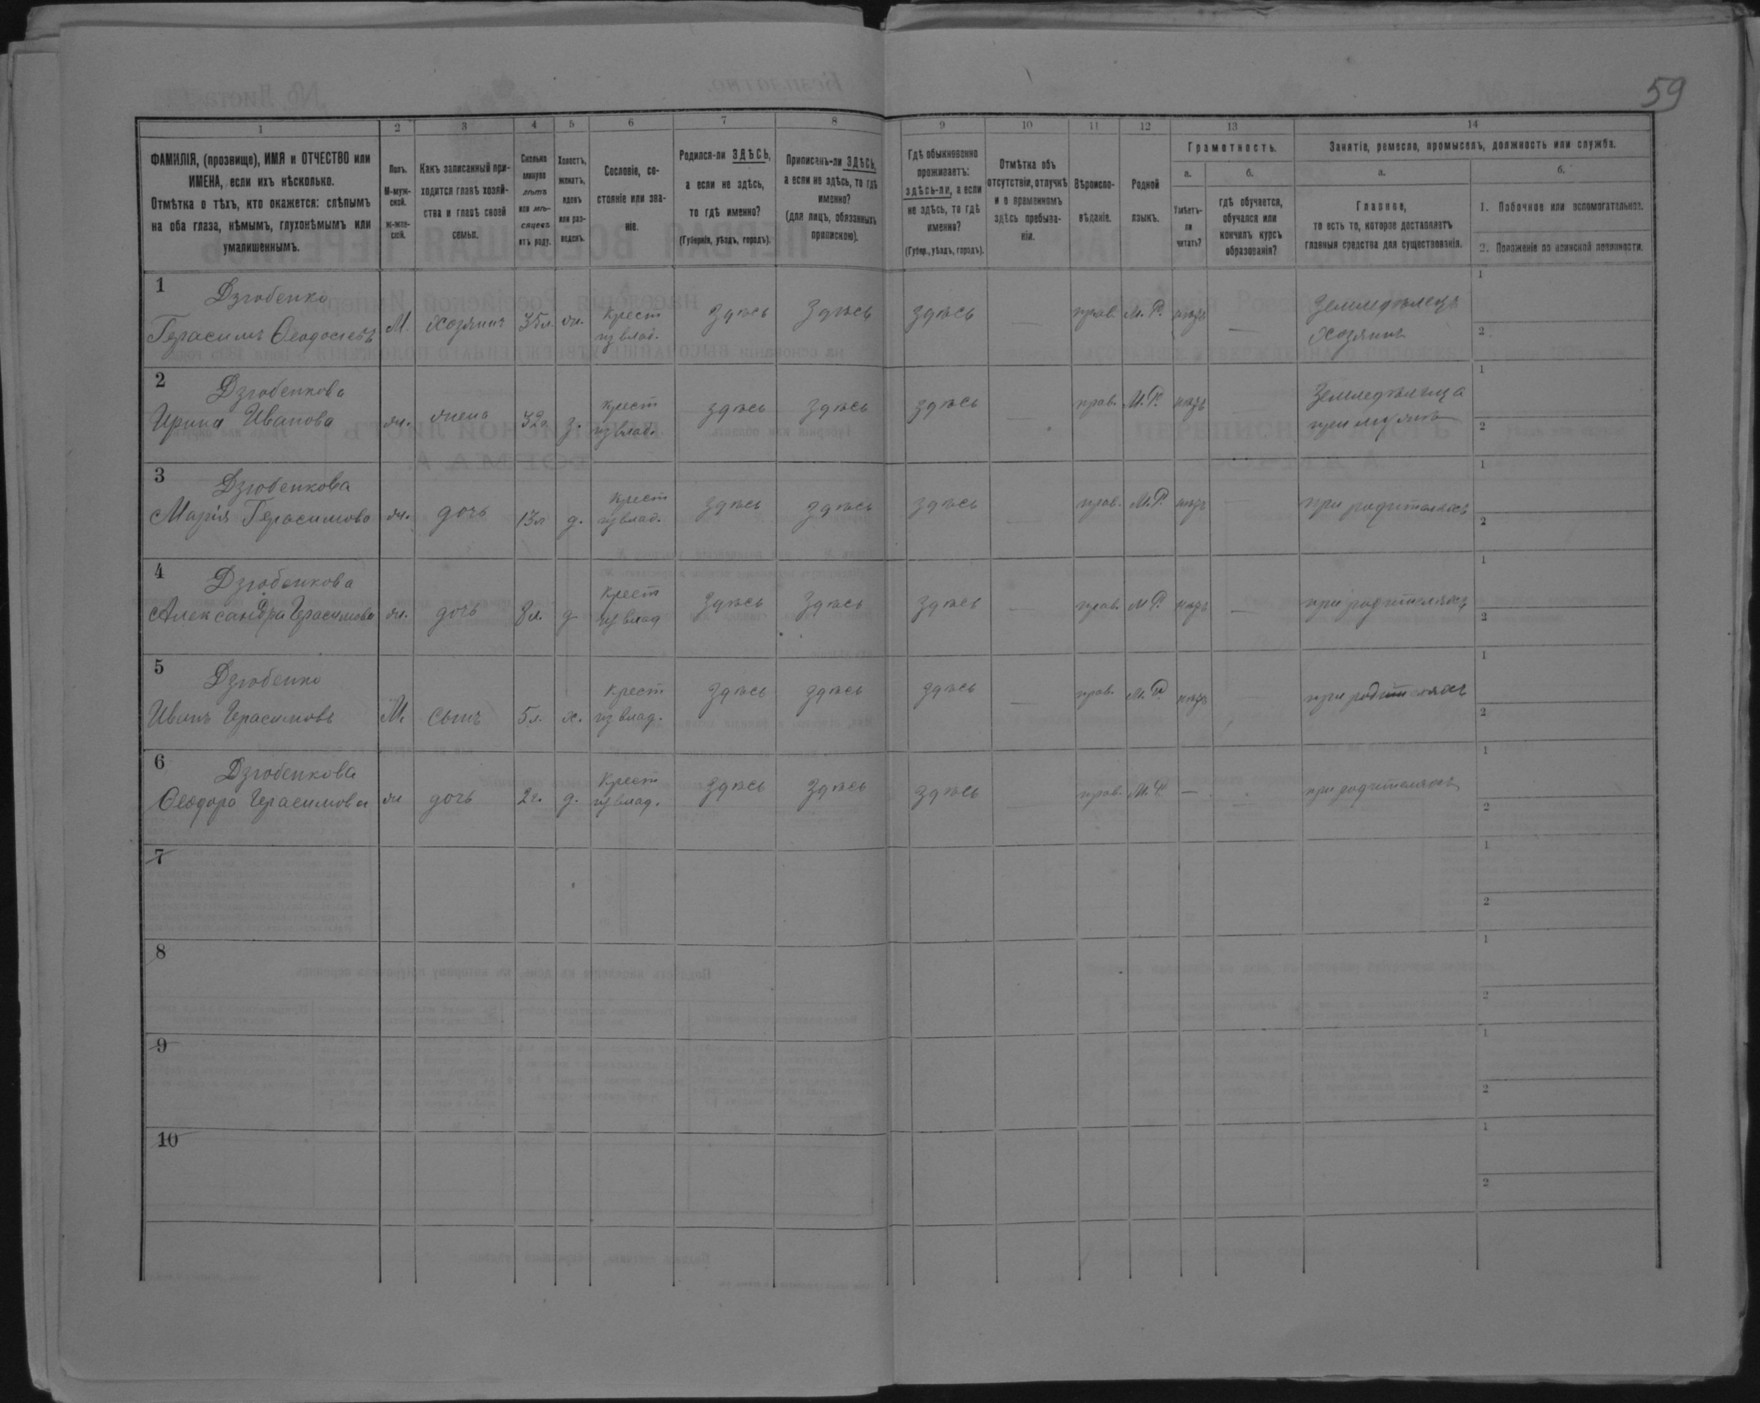 59
1 2 3 4 5 6 7 8 9 10 11 12 13 14
ФАМИЛІЯ, (прозвище), ИМЯ и ОТЧЕСТВО или
ИМЕНА, если ихъ нѣсколько.
Отмѣтка о тѣхъ, кто окажется: слѣпымъ
на оба глаза, нѣмымъ, глухонѣмымъ или
умалишеннымъ.
Полъ.
М-муж-
ской.
ж-жен-
скій.
Какъ записанный при-
ходится главѣ хозяй-
ства и главѣ своей
семьи.
Сколько
минуло
лѣтъ
или мѣ-
сяцевъ
отъ роду.
Холостъ,
женатъ,
вдовъ
или раз-
веденъ.
Сословіе, со-
стояніе или зва-
ніе.
Родился-ли ЗДѢСЬ,
а если не здѣсь,
то гдѣ именно?
(Губернія, уѣздъ, городъ).
Приписанъ-ли ЗДѢСЬ,
а если не здѣсь, то гдѣ
именно?
(для лицъ, обязанныхъ
припискою).
Гдѣ обыкновенно
проживаетъ:
здѣсь-ли, а если
не здѣсь, то гдѣ
именно?
(Губер., уѣздъ, городъ).
Отмѣтка объ
отсутствіи, отлучкѣ
и о временномъ
здѣсь пребыва-
ніи.
Вѣроиспо-
вѣданіе.
Родной
языкъ.
Грамотность.
а.
Умѣетъ-
ли
читать?
б.
гдѣ обучается,
обучался или
кончилъ курсъ
образованія?
Занятіе, ремесло, промыселъ, должность или служба.
а.
Главное,
то есть то, которое доставляетъ
главныя средства для существованія.
б.
1. Побочное или вспомогательное.
2. Положеніе по воинской повинности.
1 Дзюбенко
Герасимъ Ѳеодосіевъ М. Хозяинъ 35л. ж. Крест изъ влад. Здѣсь Здѣсь Здѣсь — прав. М. Р. нѣтъ — Земледѣлецъ Хозяинъ 1 2
2 Дзюбенкова
Ирина Иванова ж. жена 32г. з. Крест изъ влад. Здѣсь Здѣсь Здѣсь — прав. М. Р. нѣтъ — Земледѣлица при мужѣ 1 2
3 Дзюбенкова
Марія Герасимова ж. дочь 13л д. Крест изъ влад. Здѣсь здѣсь здѣсь — прав. М. Р. нѣтъ — при родителяхъ 1 2
4 Дзюбенкова
Александра Герасимова ж. дочь 8л. д. Крест изъ влад Здѣсь Здѣсь Здѣсь — прав. М. Р. нѣтъ — при родителяхъ 1 2
5 Дзюбенко
Иванъ Герасимовъ М. сынъ 5л. х. Крест изъ влад. Здѣсь здѣсь здѣсь — прав. М. Р. нѣтъ — при родителяхъ 1 2
6 Дзюбенкова
Ѳеодора Герасимова ж дочь 2г. д. Крест изъ влад. Здѣсь Здѣсь Здѣсь — прав. М. Р. — при родителяхъ 1 2
7 1 2
8 1 2
9 1 2
10 1 2